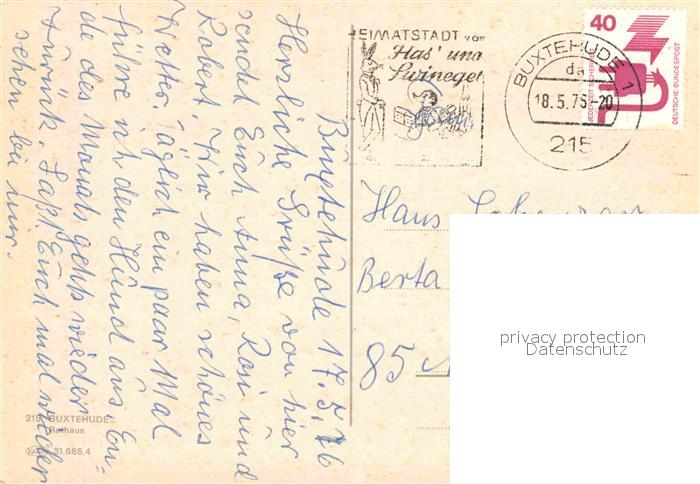 Buxtehude 17.5.76
Herzliche Grüße von hier
Euch Anna, Rosi und
Robert. Wir haben schönes
Wetter, ein paar Mal
führe ich den Hund aus. En-
de des Monats gehts wieder
zurück. Laßt Euch mal wieder
sehen bei mir.
HEIMATSTADT von
Has' und
Swinegel
BUXTEHUDE 1
da
18.5.76-20
215
40
JEDERZEIT SICHERHEIT
DEUTSCHE BUNDESPOST
Hans
Berta
85
privacy protection
Datenschutz
215 BUXTEHUDE
Rathaus
31.685.4